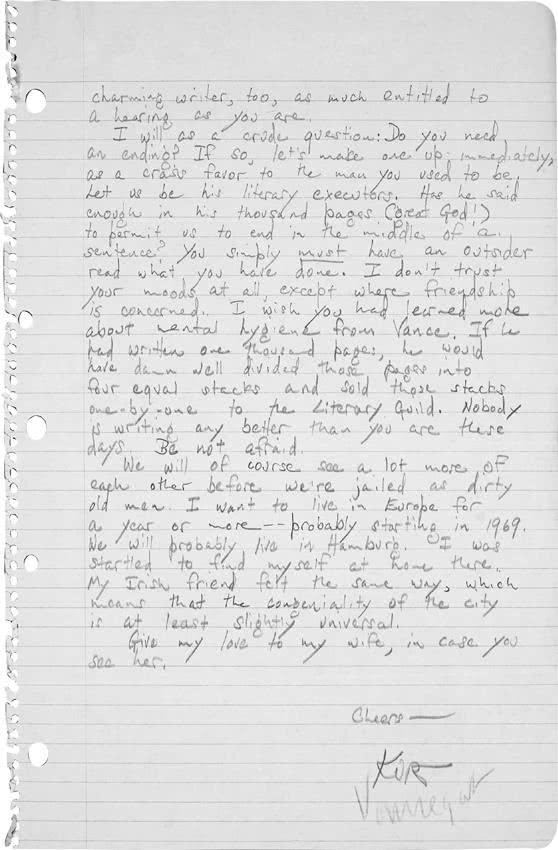 charming writer, too, as much entitled to
a hearing as you are.
I will as a crude question: Do you need
an ending? If so, let's make one up, immediately,
as a crass favor to the man you used to be.
Let us be his literary executors. Has he said
enough in his thousand pages (Great God!)
to permit us to end in the middle of a
sentence? You simply must have an outsider
read what you have done. I don't trust
your moods at all, except where friendship
is concerned. I wish you had learned more
about mental hygiene from Vance. If he
had written one thousand pages, he would
have damn well divided those pages into
four equal stacks and sold those stacks
one-by-one to the Literary Guild. Nobody
is writing any better than you are these
days. Be not afraid.
We will of course see a lot more of
each other before we're jailed as dirty
old men. I want to live in Europe for
a year or more--probably starting in 1969.
We will probably live in Hamburg. I was
startled to find myself at home there.
My Irish friend felt the same way, which
means that the congeniality of the city
is at least slightly universal.
Give my love to my wife, in case you
see her.
Cheers—
Kurt
Vonnegut